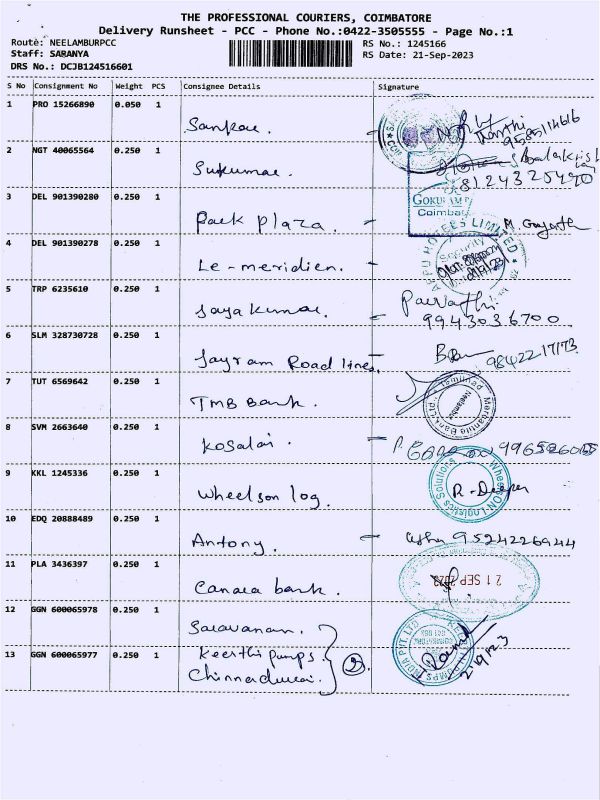 THE PROFESSIONAL COURIERS, COIMBATORE
Delivery Runsheet - PCC - Phone No.:0422-3505555 - Page No.:1
Route: NEELAMBURPCC RS No.: 1245166
Staff: SARANYA RS Date: 21-Sep-2023
DRS No.: DCJB124516601
S No Consignment No Weight PCS Consignee Details Signature
1 PRO 15266890 0.050 1
Sankar.
2 NGT 40065564 0.250 1
Sukumar. 8124325490
3 DEL 901390280 0.250 1
GOKULAM
Coimbat
Park plaza.
4 DEL 901390278 0.250 1
Security
Le-meridien.
5 TRP 6235610 0.250 1 Parvathi
Jayakumar. 9943036700
6 SLM 328730728 0.250 1
Jayram Road lines. 9842217173
7 TUT 6569642 0.250 1
Tamilnad Mercantile Bank Ltd.,
Neelambur
TMB Bank.
8 SVM 2663640 0.250 1
Kosalai.
9 KKL 1245336 0.250 1
WheelSON Logistics Solutions
Wheelson log. R. Deepa
10 EDQ 20888489 0.250 1
Antony. 9524226944
11 PLA 3436397 0.250 1
21 SEP 2023
Canara bank.
12 GGN 600065978 0.250 1
Saravanan.
13 GGN 600065977 0.250 1
Keerthi pumps.
Chinnadurai. 2
21/9/23